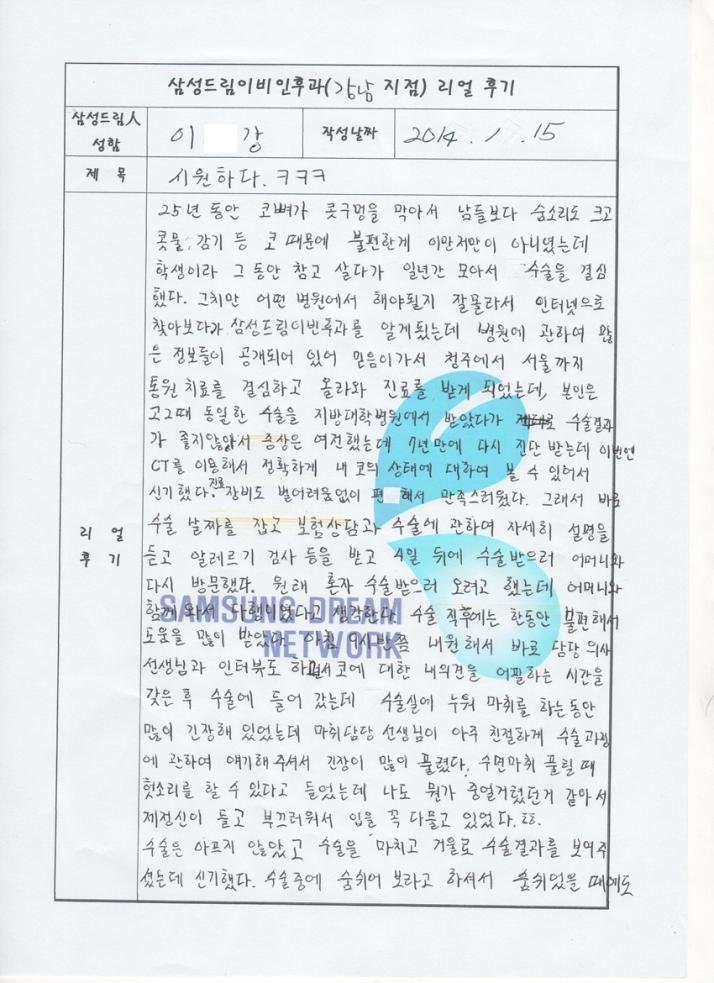 삼성드림이비인후과(강남 지점) 리얼 후기
삼성드림人 성함
이 강
작성날짜
2014. 1. 15
제 목
시원하다. ㅋㅋㅋ
리 얼
후 기
25년 동안 코뼈가 콧구멍을 막아서 남들보다 숨소리도 크고
콧물, 감기 등 코 때문에 불편한게 이만저만이 아니였는데
학생이라 그동안 참고 살다가 일년간 모아서 수술을 결심
했다. 그치만 어떤 병원에서 해야될지 잘몰라서 인터넷으로
찾아보다가 삼성드림이빈후과를 알게됬는데 병원에 관하여 많
은 정보들이 공개되어 있어 믿음이가서 청주에서 서울까지
통원치료를 결심하고 올라와 진료를 받게 되었는데, 본인은
고2때 동일한 수술을 지방대학병원에서 받았다가 수술결과
가 좋지않아서 증상은 여전했는데 7년만에 다시 진단 받는데 이번엔
CT를 이용해서 정확하게 내 코의 상태에 대하여 볼 수 있어서
신기했다. 진료 장비도 벌어려움없이 편 해서 만족스러웠다. 그래서 바로
수술 날짜를 잡고 보험상담과 수술에 관하여 자세히 설명을
듣고 알레르기 검사 등을 받고 4일 뒤에 수술받으러 어머니와
다시 방문했다. 원래 혼자 수술받으러 오려고 했는데 어머니와
함께 와서 다행이었다고 생각한다. 수술 직후에는 한동안 불편해서
도움을 많이 받았다. 아침 9시반쯤 내원해서 바로 담당 의사
선생님과 인터뷰도 하면서 코에 대한 내의견을 어필하는 시간을
갖은 후 수술에 들어 갔는데 수술실에 누워 마취를 하는동안
많이 긴장해 있었는데 마취담당 선생님이 아주 친절하게 수술과정
에 관하여 얘기해 주셔서 긴장이 많이 풀렸다. 수면마취 풀릴 때
헛소리를 할 수 있다고 들었는데 나도 뭔가 중얼거렸던거 같아서
제정신이 들고 부끄러워서 입을 꼭 다물고 있었다. ㅎㅎ.
수술은 아프지 않았고 수술을 마치고 거울로 수술결과를 보여주
셨는데 신기했다. 수술중에 숨쉬어 보라고 하셔서 숨쉬었을 때에도
SAMSUNG DREAM
NETWORK